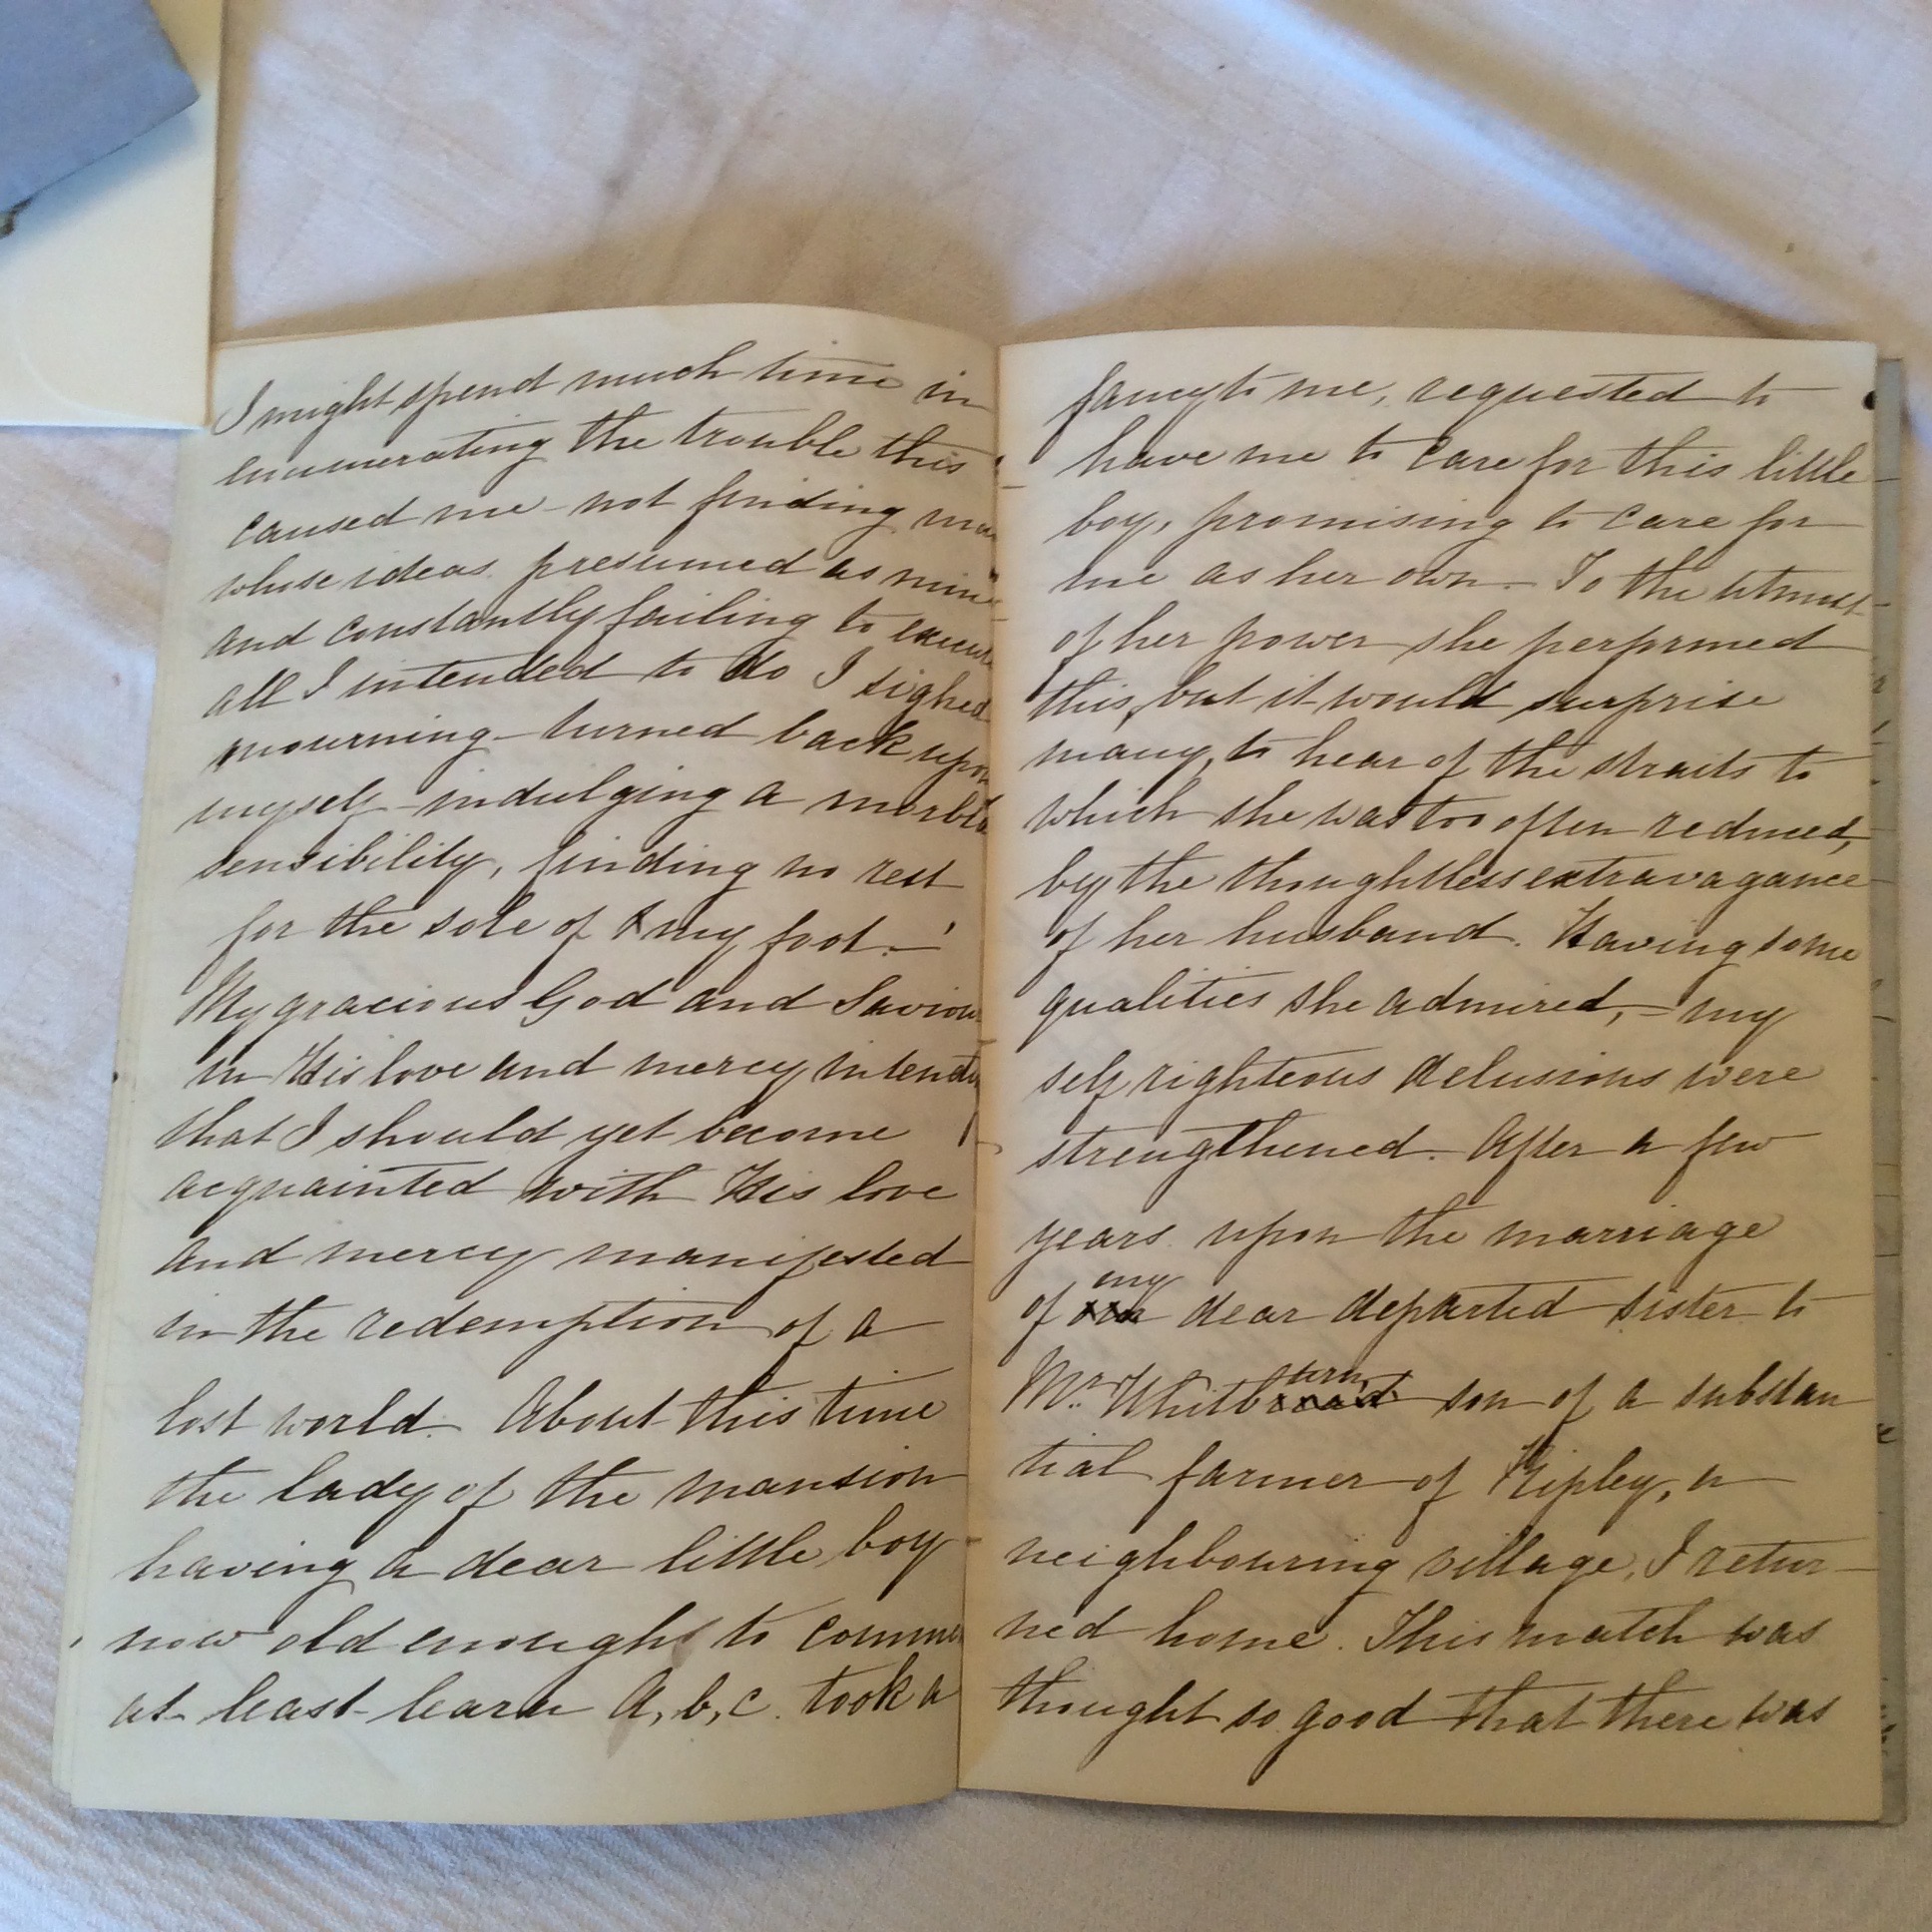 I might spend much time in
enumerating the trouble this
caused me - not finding
whose ideas presumed as mine
and constantly failing to execute
all I intended to do I sighed
mourning - turned back upon
myself - indulging a morbid
sensibility, finding no rest
for the sole of my foot. -'
My gracious God and Saviour
in His love and mercy intended
that I should yet become
acquainted with His love
and mercy manifested
in the redemption of a
lost world. About this time
the lady of the mansion
having a dear little boy
now old enough to
at least learn A, b, c. took a
fancy to me, requested to
have me to care for this little
boy, promising to care for
me as her own. To the utmost
of her power she performed
this, but it would surprise
many, to hear of the straits to
which she was too often reduced,
by the thoughtless extravagance
of her husband. Having some
qualities she admired, - my
self righteous delusions were
strengthened. After a few
years upon the marriage
of my dear departed sister to
Mr. Whitburn son of a substan
tial farmer of Ripley, a
neighbouring village, I retur-
ned home. This match was
thought so good that there was